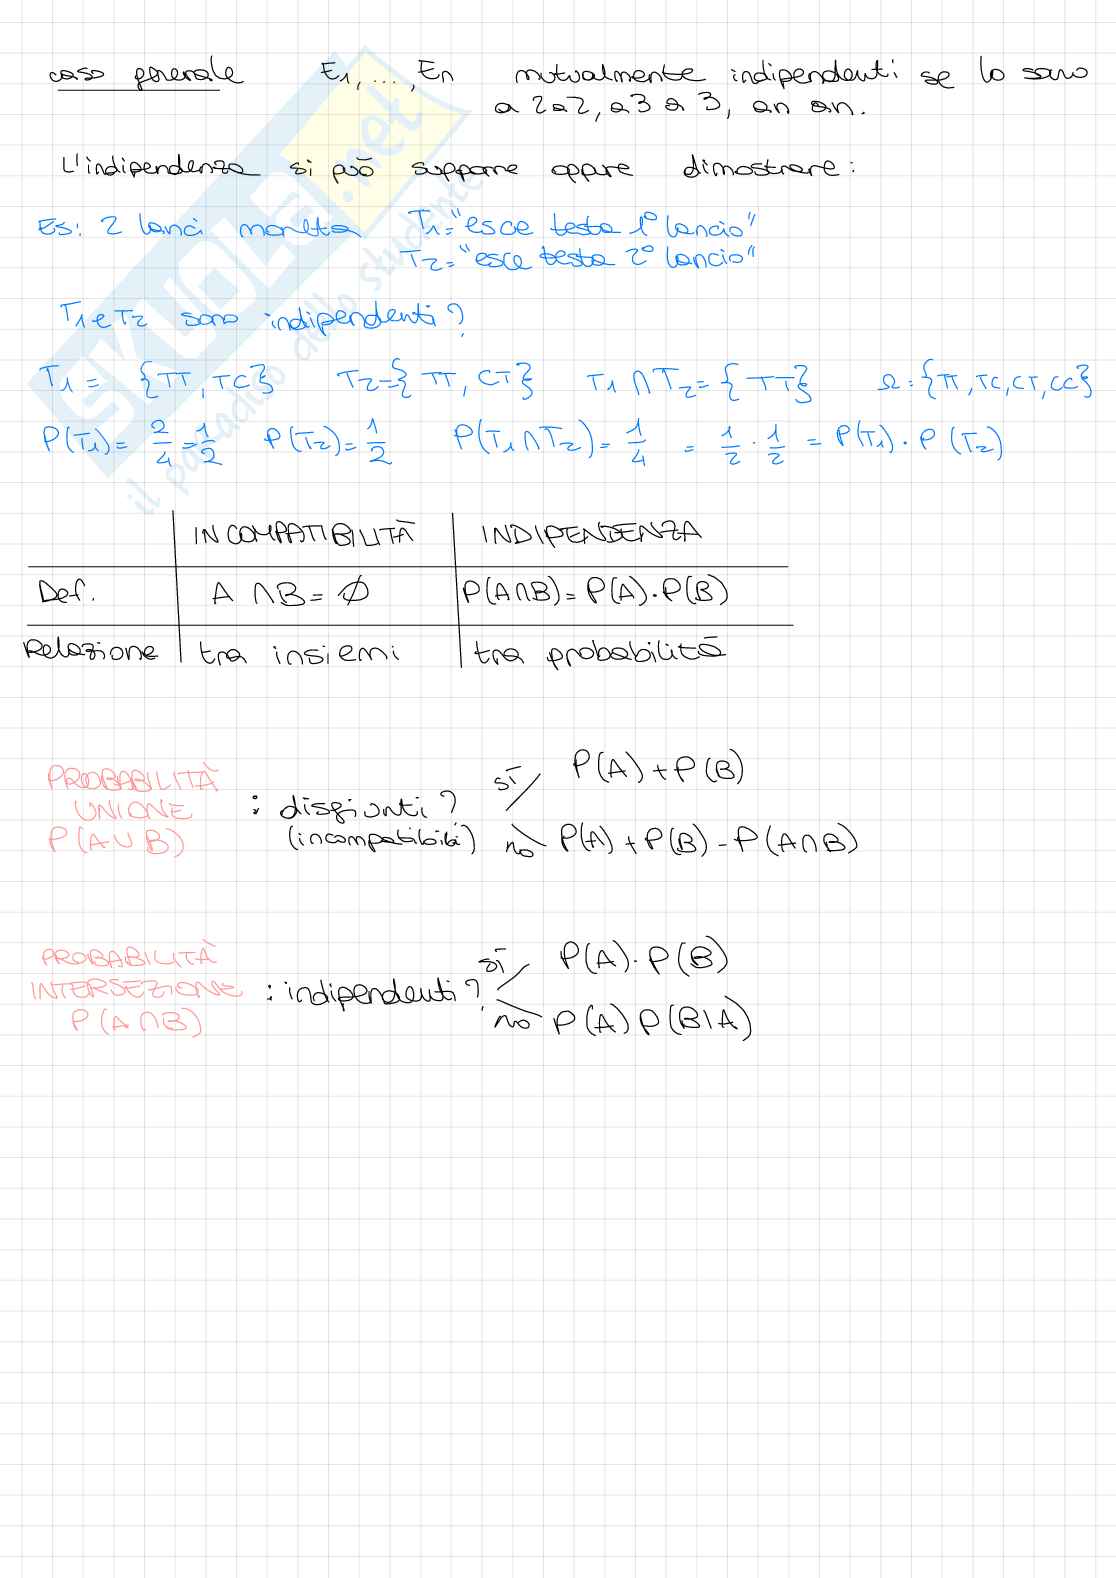 caso generale E₁, ..., En mutualmente indipendenti se lo sono
a 2 a 2, a 3 a 3, an an.
L'indipendenza si può supporre oppure dimostrare:
Es: 2 lanci moneta T₁="esce testa 1° lancio"
T₂="esce testa 2° lancio"
T₁ e T₂ sono indipendenti?
T₁ = {TT, TC} T₂={TT, CT} T₁ ∩ T₂={TT} Ω={TT, TC, CT, CC}
P(T₁)= 2/4 = 1/2 P(T₂)= 1/2 P(T₁∩T₂)= 1/4 = 1/2 · 1/2 = P(T₁) · P(T₂)
INCOMPATIBILITÀ INDIPENDENZA
Def. A ∩ B = ∅ P(A∩B)= P(A)·P(B)
Relazione tra insiemi tra probabilità
PROBABILITÀ UNIONE P(A∪B) : disgiunti? (incompatibili)
sì P(A)+P(B)
no P(A)+P(B)-P(A∩B)
PROBABILITÀ INTERSEZIONE P(A∩B) : indipendenti?
sì P(A)·P(B)
no P(A)P(B\A)
SKUOLA.net
il paradiso dello studente